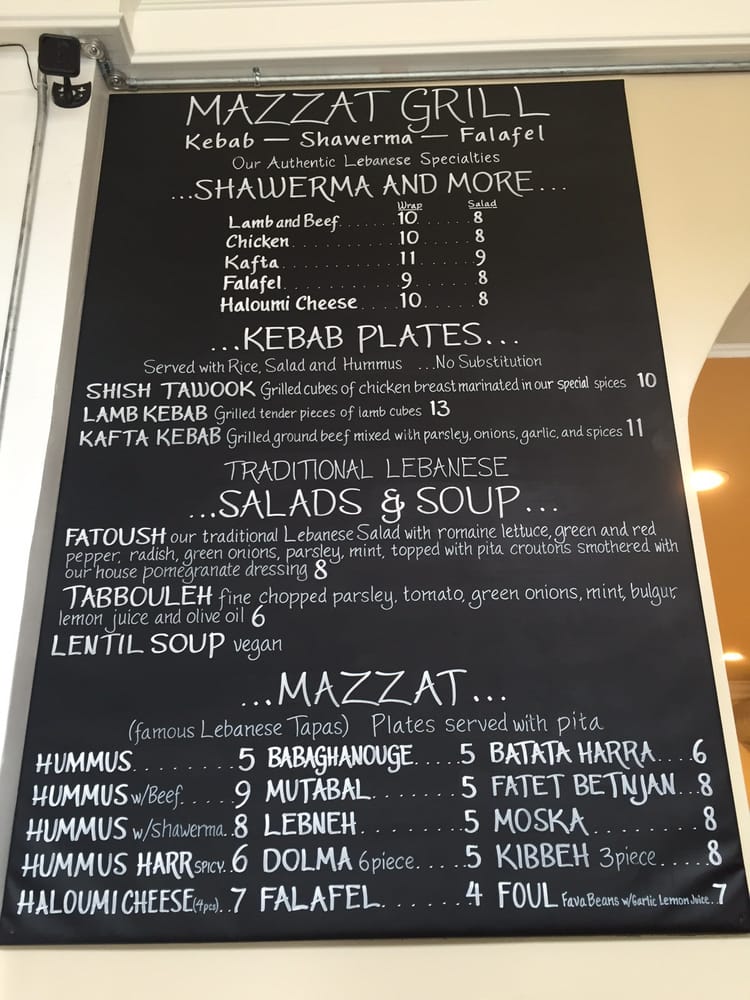 MAZZAT GRILL
Kebab — Shawerma — Falafel
Our Authentic Lebanese Specialties
...SHAWERMA AND MORE...
Wrap Salad
Lamb and Beef......10......8
Chicken............10......8
Kafta..............11......9
Falafel............9.......8
Haloumi Cheese....10......8
...KEBAB PLATES...
Served with Rice, Salad and Hummus ...No Substitution
SHISH TAWOOK Grilled cubes of chicken breast marinated in our special spices 10
LAMB KEBAB Grilled tender pieces of lamb cubes 13
KAFTA KEBAB Grilled ground beef mixed with parsley, onions, garlic, and spices 11
TRADITIONAL LEBANESE
...SALADS & SOUP...
FATOUSH our traditional Lebanese Salad with romaine lettuce, green and red
pepper, radish, green onions, parsley, mint, topped with pita croutons smothered with
our house pomegranate dressing 8
TABBOULEH fine chopped parsley, tomato, green onions, mint, bulgur,
lemon juice and olive oil 6
LENTIL SOUP vegan
...MAZZAT...
(famous Lebanese Tapas) Plates served with pita
HUMMUS........5 BABAGHANOUGE.....5 BATATA HARRA....6
HUMMUS w/Beef.....9 MUTABAL.......5 FATET BETNJAN...8
HUMMUS w/shawerma..8 LEBNEH........5 MOSKA........8
HUMMUS HARR SPICY..6 DOLMA 6piece.....5 KIBBEH 3piece....8
HALOUMI CHEESE (4pcs)..7 FALAFEL......4 FOUL Fava Beans w/Garlic Lemon Juice..7